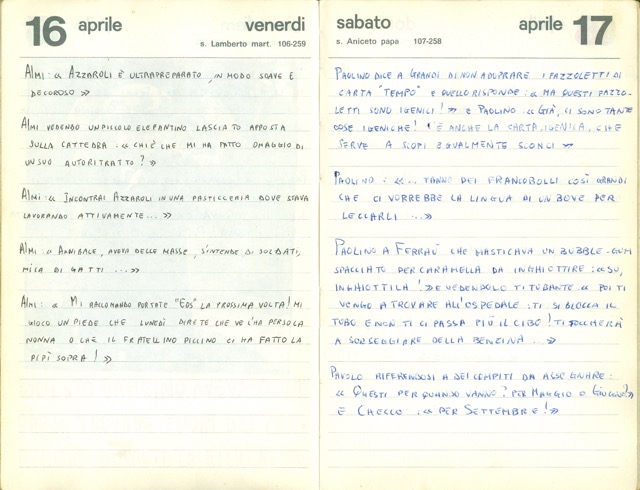 16 aprile venerdi
s. Lamberto mart. 106-259
Almi: « Azzaroli è ultrapreparato, in modo soave e
decoroso »
Almi vedendo un piccolo elefantino lasciato apposta
sulla cattedra: « chi è che mi ha fatto omaggio di
un suo autoritratto? »
Almi: « Incontrai Azzaroli in una pasticceria dove stava
lavorando attivamente... »
Almi: « Annibale, aveva delle masse, s'intende di soldati,
mica di gatti ....»
Almi: « Mi raccomando portate "Eos" la prossima volta! Mi
gioco un piede che lunedì direte che ve l'ha perso la
nonna o che il fratellino piccino ci ha fatto la
pipì sopra! »
sabato aprile 17
s. Aniceto papa 107-258
Paolino dice a Grandi di non adoprare i fazzoletti di
carta "Tempo" e quello risponde: « ma questi fazzo-
letti sono igenici! » e Paolino: « Già, ci sono tante
cose igeniche! C'è anche la carta igenica, che
serve a scopi egualmente sconci »
Paolino: «... tanno dei francobolli così grandi
che ci vorrebbe la lingua di un bove per
leccarli ...»
Paolino a Ferraù che masticava un bubble-gum
spacciato per caramella da inghiottire: « su,
inghiottila! » e vedendolo titubante « poi ti
vengo a trovare all'ospedale: ti si blocca il
tubo e non ti ci passa più il cibo! Ti toccherà
a sorseggiare della benzina... »
Paolo riferendosi a dei compiti da assegnare:
« Questi per quando vanno? Per Maggio o Giugno? »
e Checco: « per Settembre! »